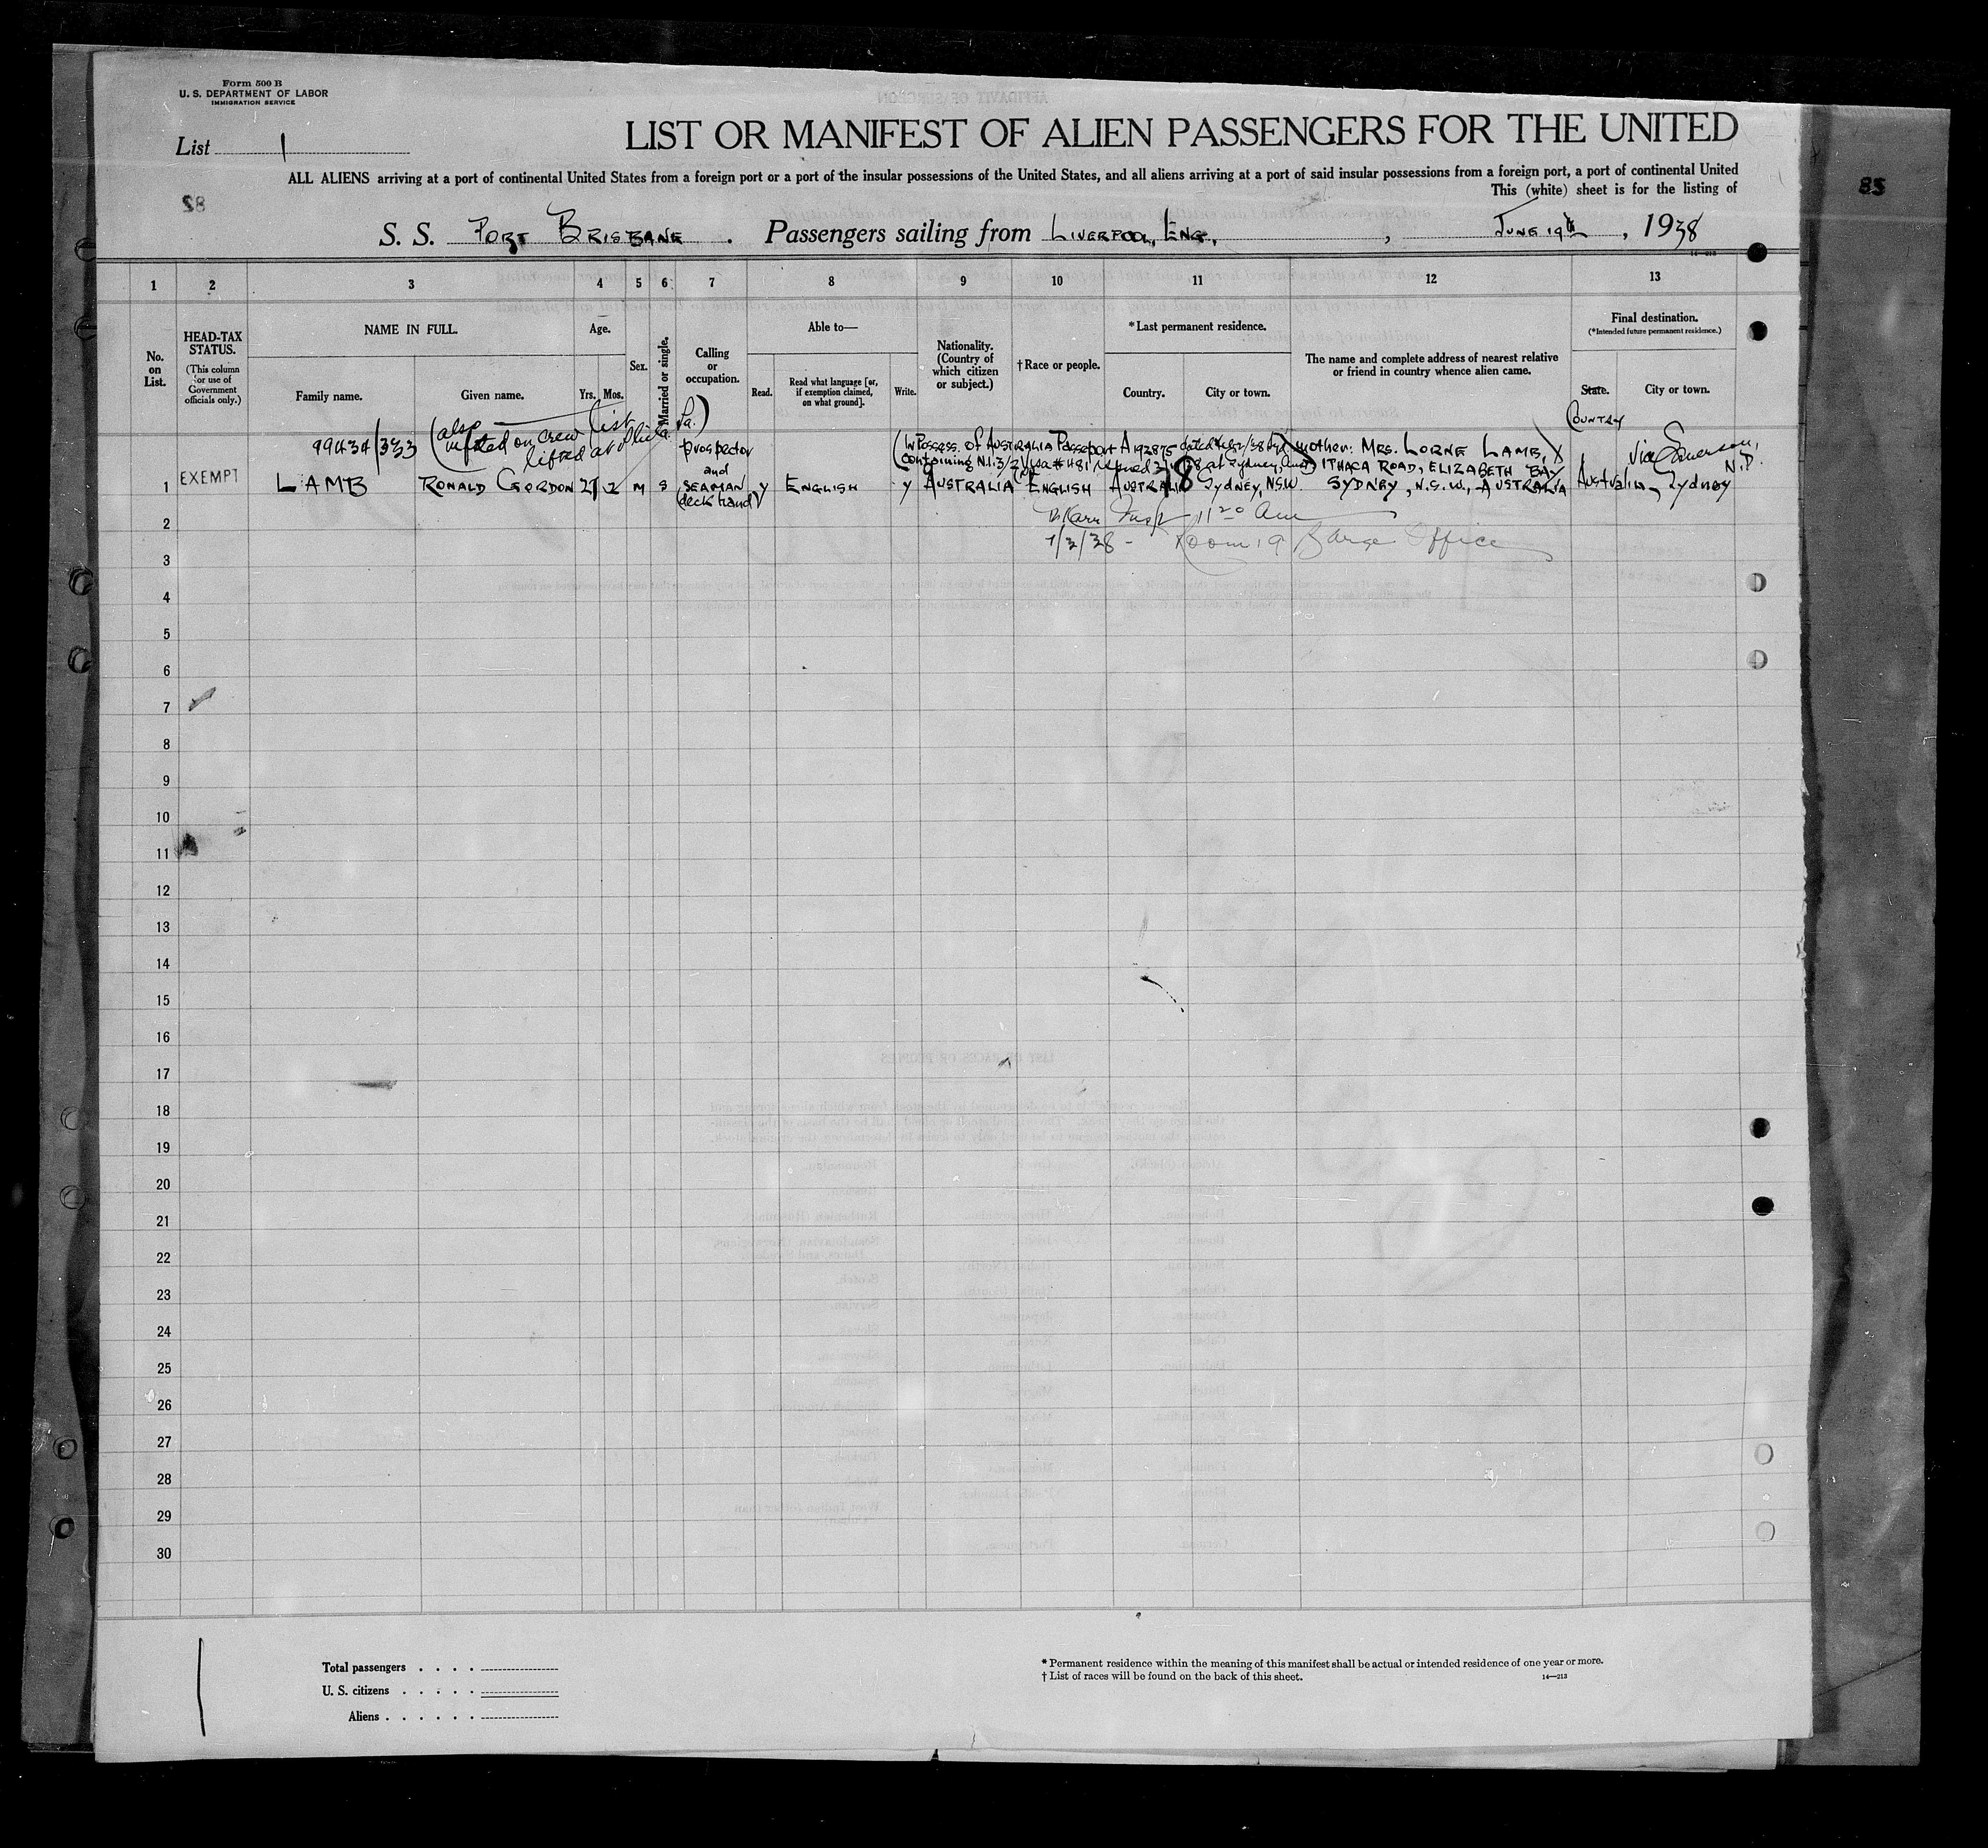 Form 500 B
U. S. DEPARTMENT OF LABOR
IMMIGRATION SERVICE
List 1
LIST OR MANIFEST OF ALIEN PASSENGERS FOR THE UNITED
ALL ALIENS arriving at a port of continental United States from a foreign port or a port of the insular possessions of the United States, and all aliens arriving at a port of said insular possessions from a foreign port, a port of continental United
This (white) sheet is for the listing of
85
S. S. PORT BRISBANE . Passengers sailing from LIVERPOOL, ENG., , JUNE 19th , 1938
14—213
1 2 3 4 5 6 7 8 9 10 11 12 13
No. on List.
HEAD-TAX STATUS.
(This column for use of Government officials only.)
NAME IN FULL.
Family name.
Given name.
Age.
Yrs. Mos.
Sex.
Married or single.
Calling or occupation.
Able to—
Read.
Read what language [or, if exemption claimed, on what ground].
Write.
Nationality. (Country of which citizen or subject.)
†Race or people.
*Last permanent residence.
Country.
City or town.
The name and complete address of nearest relative or friend in country whence alien came.
Final destination.
(*Intended future permanent residence.)
State.
COUNTRY
City or town.
99434/333
(also on crew list
lifted at Phila. Pa.)
prospector
and
SEAMAN
(deck hand)
(In Possess. of Australia Passport A192875 dated
containing N.I. 3/2) Visa # 481 at Sydney,
mother: MRS. LORNE LAMB, X
ITHACA ROAD, ELIZABETH BAY
SYDNEY, N.S.W., AUSTRALIA
via
N.D.
1 EXEMPT LAMB RONALD GORDON 27 2 M S y ENGLISH y AUSTRALIA ENGLISH AUSTRALIA Sydney, NSW. Australia, Sydney
78
11 20 Am
7/2/38 - Room 9 Barge Office
2
3
4
5
6
7
8
9
10
11
12
13
14
15
16
17
18
19
20
21
22
23
24
25
26
27
28
29
30
Total passengers . . . .
U. S. citizens . . . . .
Aliens . . . . . .
* Permanent residence within the meaning of this manifest shall be actual or intended residence of one year or more.
† List of races will be found on the back of this sheet.
14—213